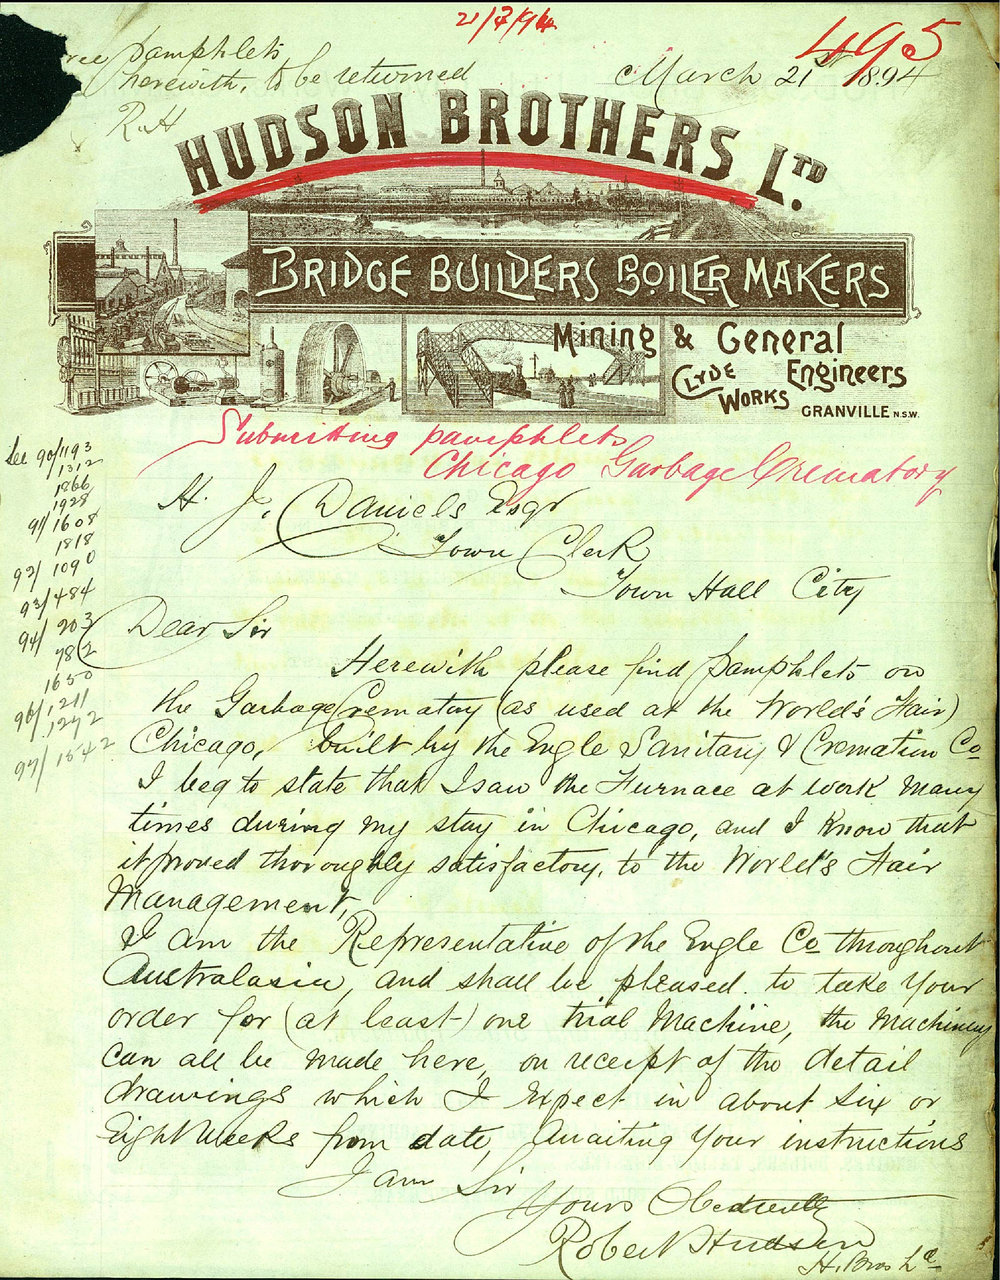 21/3/94
495
Pamphlets
herewith, to be returned
R.H
March 21st 1894
HUDSON BROTHERS LTD.
BRIDGE BUILDERS BOILER MAKERS
Mining & General
Engineers
CLYDE
WORKS
GRANVILLE N.S.W.
Submitting pamphlets
Chicago Garbage Crematory
See 90/1193
1312
1866
1928
91/1608
1818
92/1090
93/484
94/203
782
1650
96/1211
1292
97/1542
H. J. Daniels Esqr
Town Clerk
Town Hall City
Dear Sir
Herewith please find pamphlets on
the Garbage Crematory (as used at the World's Fair)
Chicago, built by the Engle Sanitary & Cremation Co
I beg to state that I saw the Furnace at work many
times during my stay in Chicago, and I know that
it proved thoroughly satisfactory, to the World's Fair
Management,
I am the Representative of the Engle Co throughout
Australasia, and shall be pleased. to take your
order for (at least) one trial Machine, the Machinery
can all be made here, on receipt of the detail
drawings which I Expect in about six or
Eight Weeks from date, Awaiting Your instructions
I am Sir
Yours Obediently
Robert Hudson
H. Bros Ld